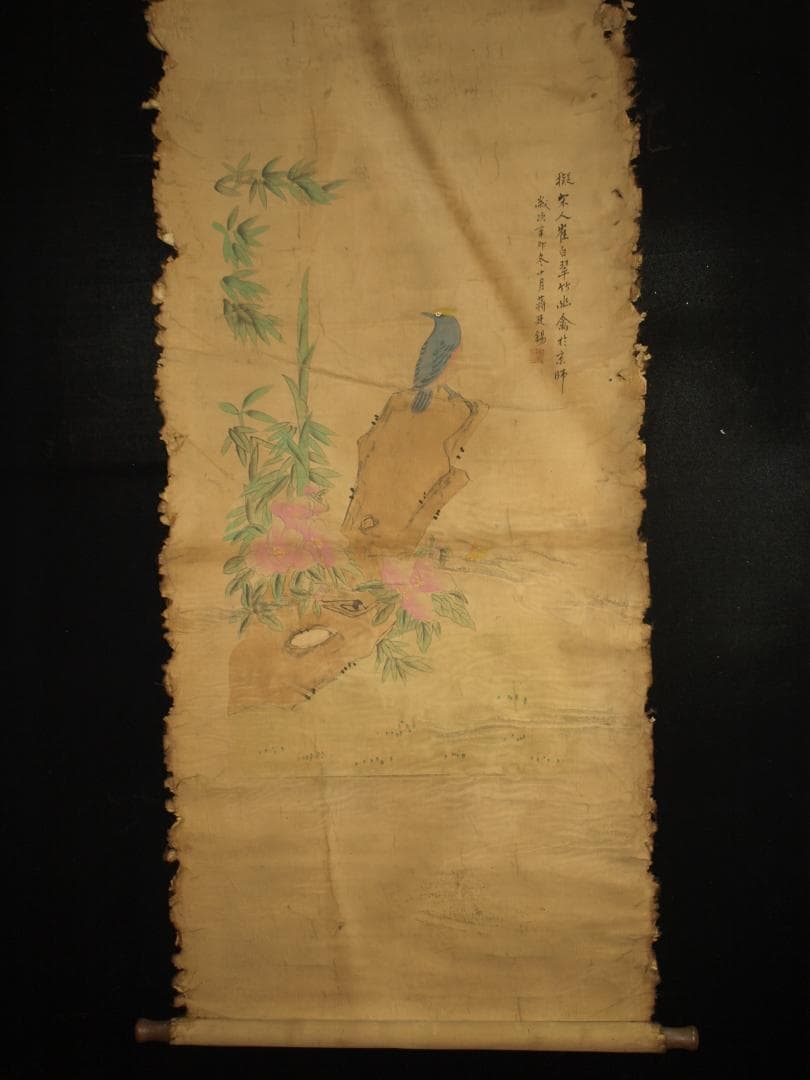 擬宋人崔白翠竹幽禽於京師
歲次辛卯冬十月蔣廷錫